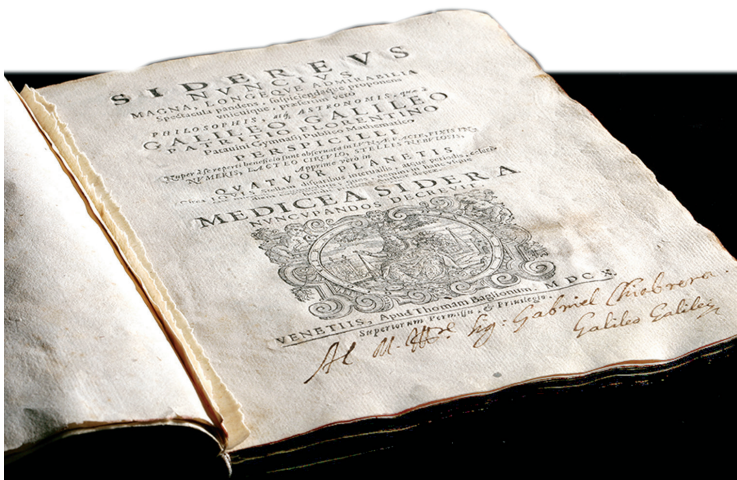 SIDEREVS
NVNCIVS
MAGNA, LONGEQVE ADMIRABILIA
Spectacula pandens, suspiciendaque proponens
vnicuique, præsertim verò
PHILOSOPHIS, atq ASTRONOMIS, quæ à
GALILEO GALILEO
PATRITIO FLORENTINO
Patauini Gymnasij Publico Mathematico
PERSPICILLI
Nuper à se reperti beneficio sunt obseruata in LVNÆ FACIE, FIXIS IN-
NVMERIS, LACTEO CIRCVLO, STELLIS NEBVLOSIS,
Apprime verò in
QVATVOR PLANETIS
Circa IOVIS Stellam disparibus interuallis, atque periodis, celeri-
MEDICEA SIDERA
NVNCVPANDOS DECREVIT
VENETIIS, Apud Thomam Baglionum. M DC X.
Superiorum Permissu, & Priuilegio.
Al M. Sig: Gabriel Chiabrera.
Galileo Galilei